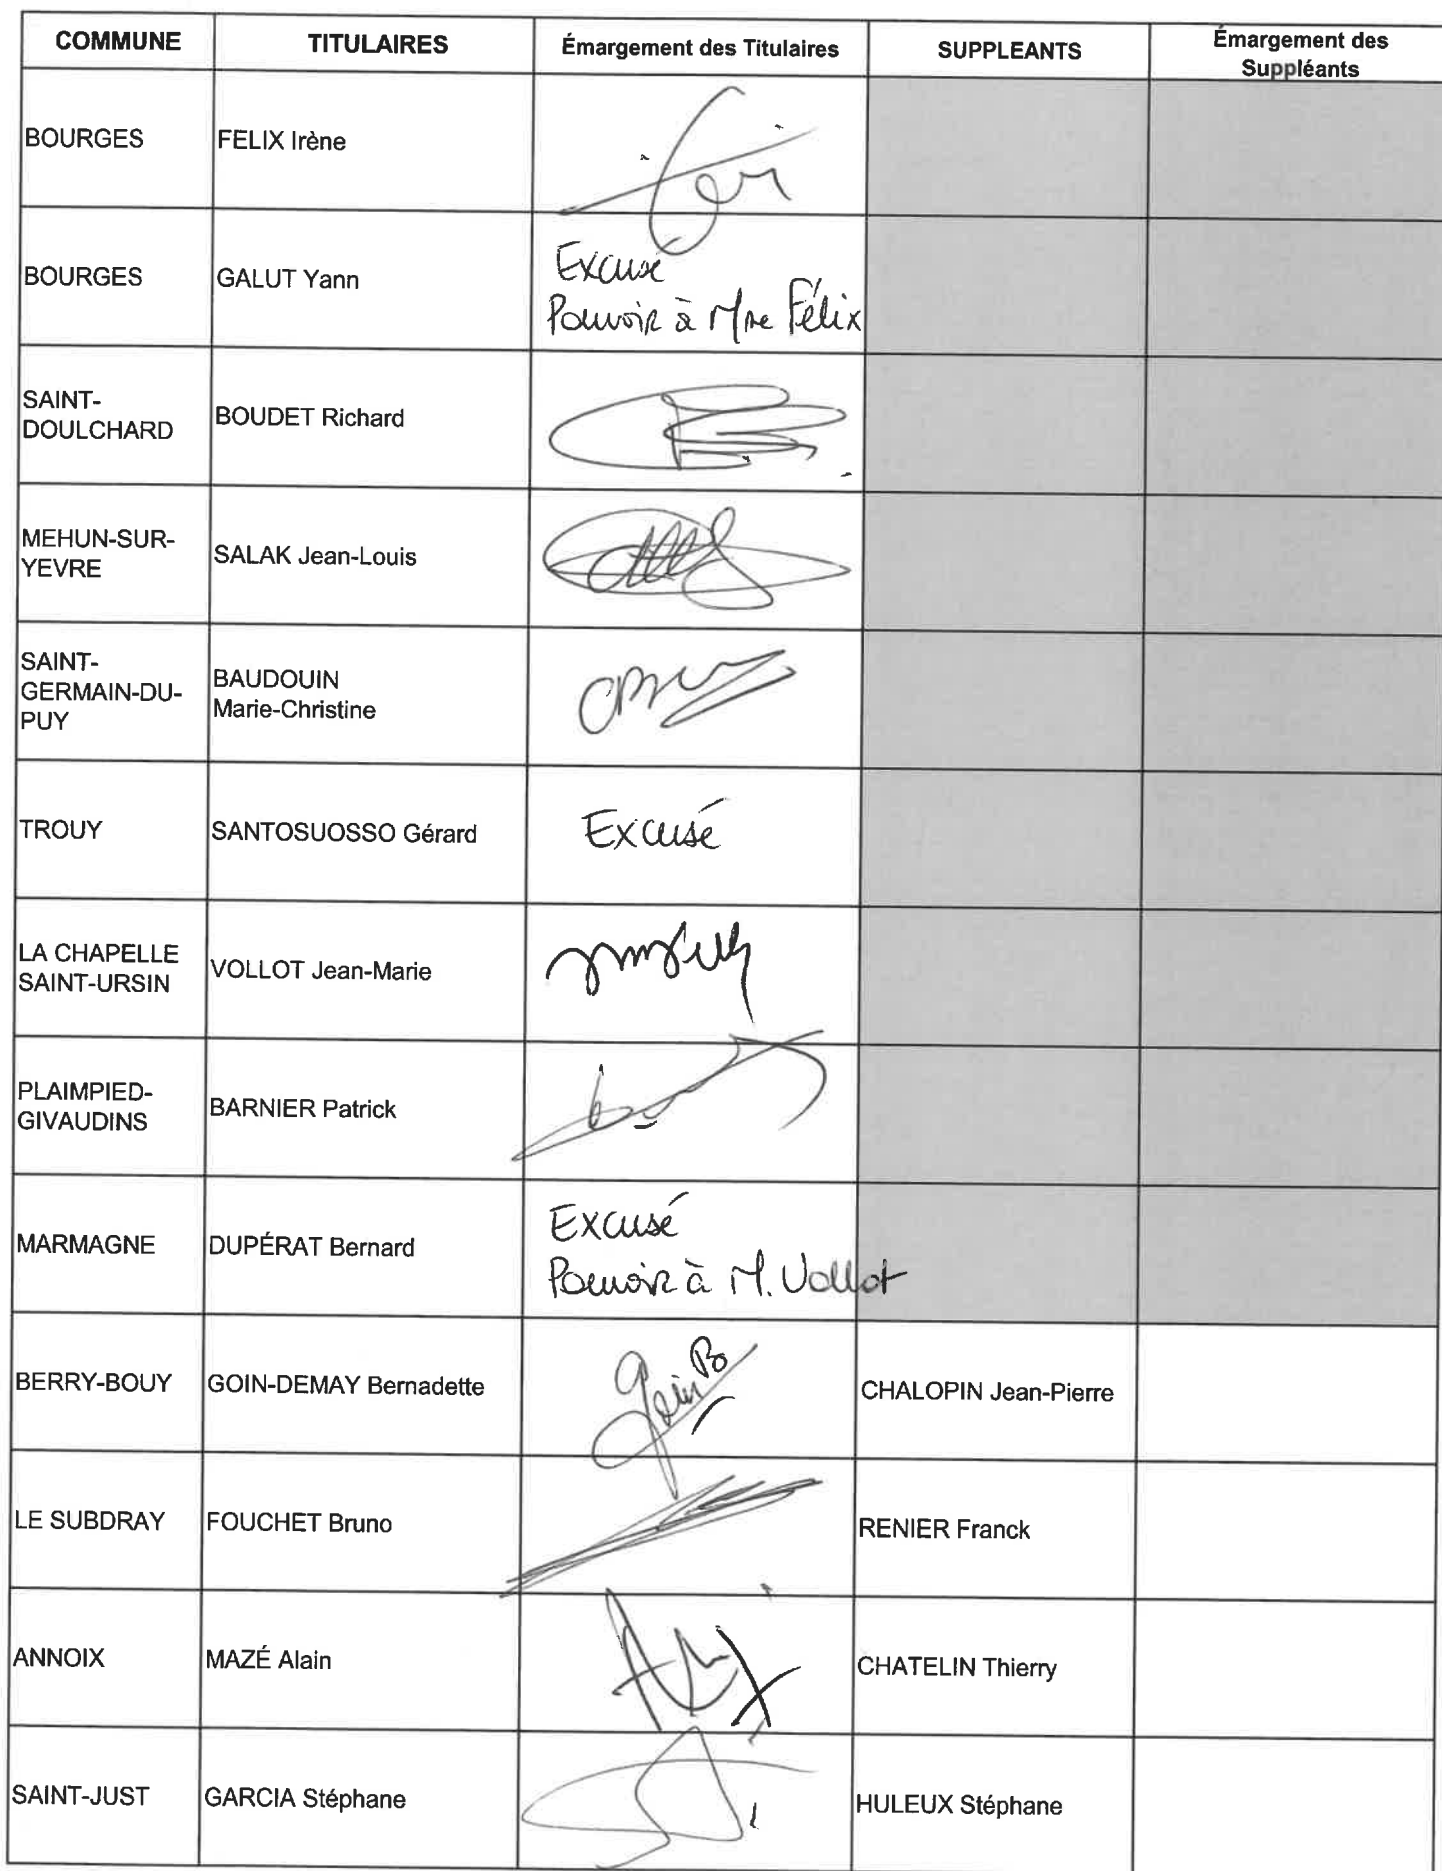 COMMUNE
TITULAIRES
Émargement des Titulaires
SUPPLEANTS
Émargement des
Suppléants
BOURGES
FELIX Irène
BOURGES
GALUT Yann
Excusé
Pouvoir à Mme Félix
SAINT-
DOULCHARD
BOUDET Richard
MEHUN-SUR-
YEVRE
SALAK Jean-Louis
SAINT-
GERMAIN-DU-
PUY
BAUDOUIN
Marie-Christine
TROUY
SANTOSUOSSO Gérard
Excusé
LA CHAPELLE
SAINT-URSIN
VOLLOT Jean-Marie
PLAIMPIED-
GIVAUDINS
BARNIER Patrick
MARMAGNE
DUPÉRAT Bernard
Excusé
Pouvoir à M. Vollot
BERRY-BOUY
GOIN-DEMAY Bernadette
Goin B
CHALOPIN Jean-Pierre
LE SUBDRAY
FOUCHET Bruno
RENIER Franck
ANNOIX
MAZÉ Alain
CHATELIN Thierry
SAINT-JUST
GARCIA Stéphane
HULEUX Stéphane